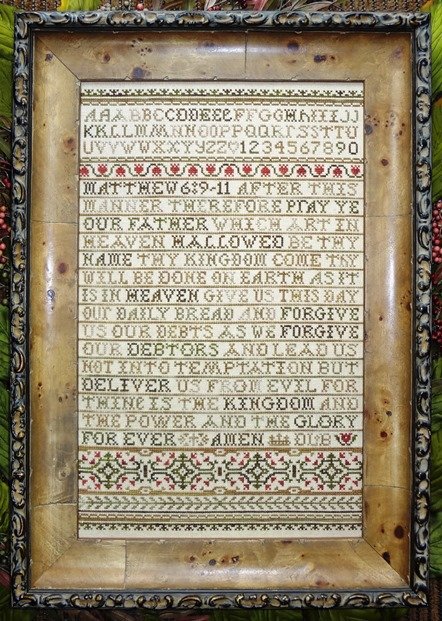 AAABBCCDDEEFFGGHHIIJJ
KKLLMMNNOOPPQQRRSSTTU
UVVWWXXYYZZ♡1234567890
MATTHEW 6:9-11 AFTER THIS
MANNER THEREFORE PRAY YE
OUR FATHER WHICH ART IN
HEAVEN HALLOWED BE THY
NAME THY KINGDOM COME THY
WILL BE DONE ON EARTH AS IT
IS IN HEAVEN GIVE US THIS DAY
OUR DAILY BREAD AND FORGIVE
US OUR DEBTS AS WE FORGIVE
OUR DEBTORS AND LEAD US
NOT INTO TEMPTATION BUT
DELIVER US FROM EVIL FOR
THINE IS THE KINGDOM AND
THE POWER AND THE GLORY
FOR EVER AMEN